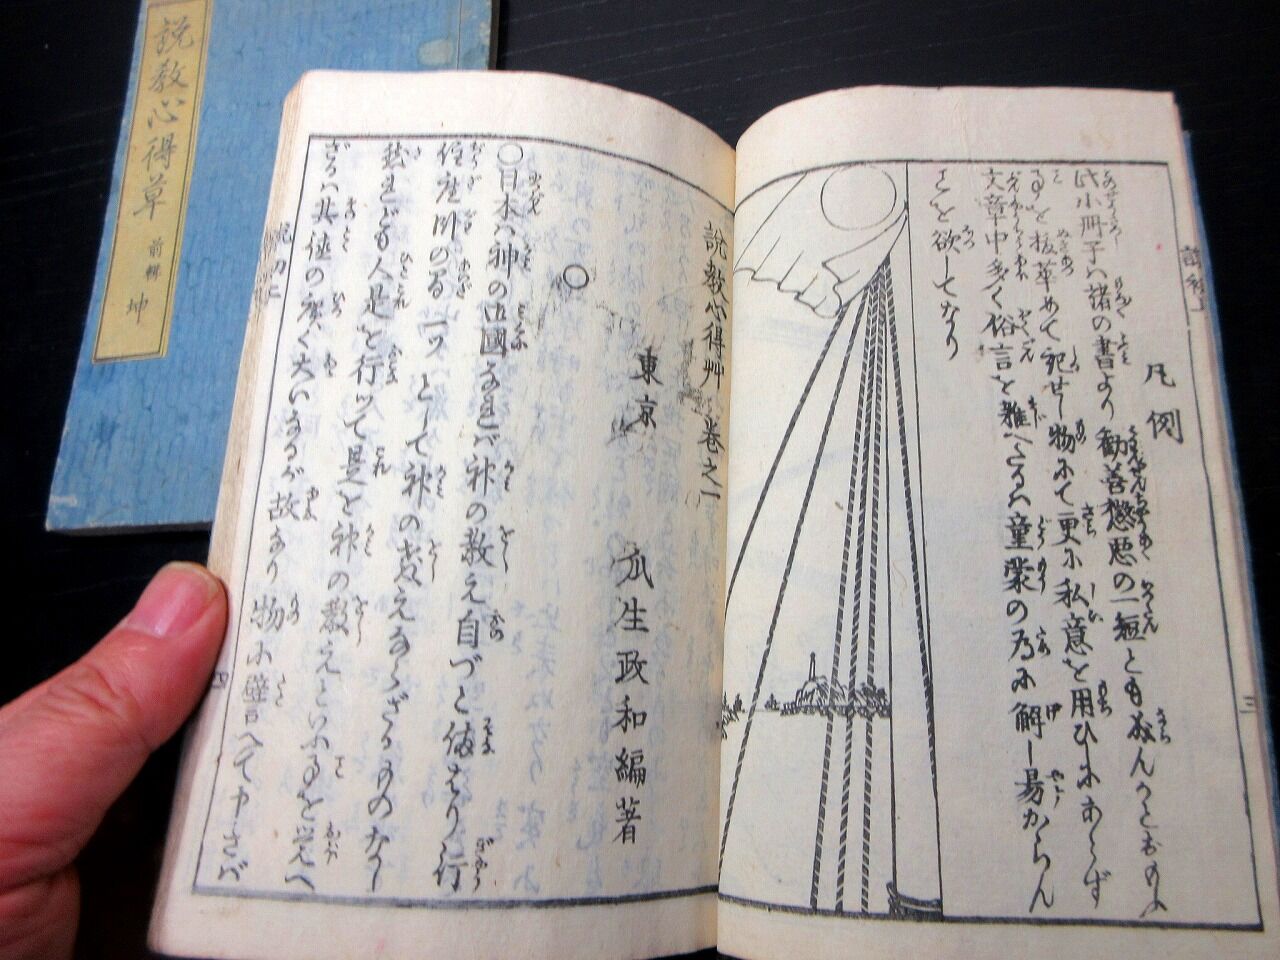 説教心得草 前輯 坤
凡例
此小冊子ハ諸の書より勧善懲悪の一短ともならんかとおもふ
を抜萃めて記せし物にて更に私意を用ひにあらず
文章中多く俗言を雑へたるハ童蒙の為に解し易からん
ことを欲してなり
三
説教心得艸 巻之一
東京 𠂢生政和編著
○
○日本ハ神の国なれバ神の教え自づと備はり行
住座臥の間一ツとして神の教えならざるものなし
然れども人是を行ツて是を神の教えといふ事を覚へ
ざるハ其徳の広く大いなるが故なり物に譬へて申さバ
四